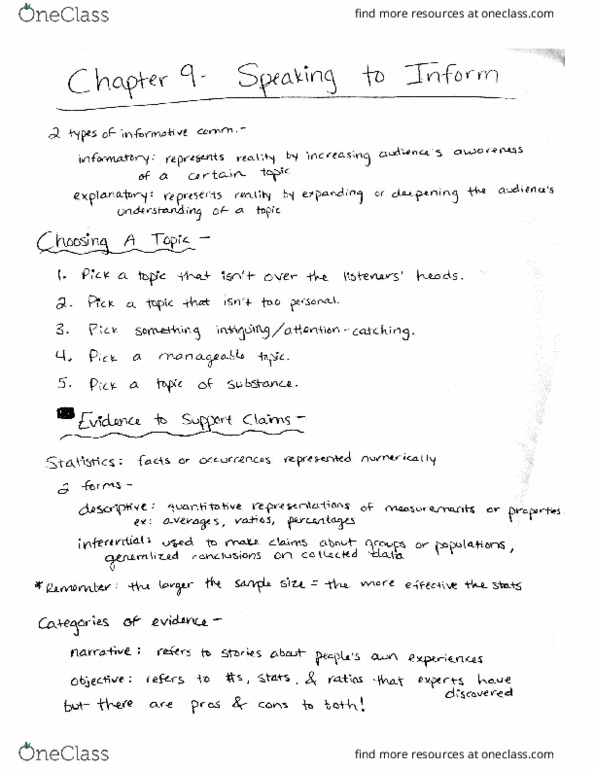 OneClass
find more resources at oneclass.com
Chapter 9- Speaking to Inform
2 types of informative comm.-
informatory: represents reality by increasing audience's awareness
of a certain topic
explanatory: represents reality by expanding or deepening the audience's
understanding of a topic
Choosing A Topic -
1. Pick a topic that isn't over the listeners' heads.
2. Pick a topic that isn't too personal.
3. Pick something intiguing/attention-catching.
4. Pick a manageable topic.
5. Pick a topic of substance.
Evidence to Support Claims-
Statistics: facts or occurrences represented numerically
2 forms-
descriptive: quantitative representations of measurements or properties
ex: averages, ratios, percentages
inferential: used to make claims about groups or populations,
generalized conclusions on collected data
*Remember: the larger the sample size = the more effective the stats
Categories of evidence-
narrative: refers to stories about people's own experiences
objective: refers to #s, stats, & ratios that experts have
discovered
but there are pros & cons to both!
OneClass
find more resources at oneclass.com